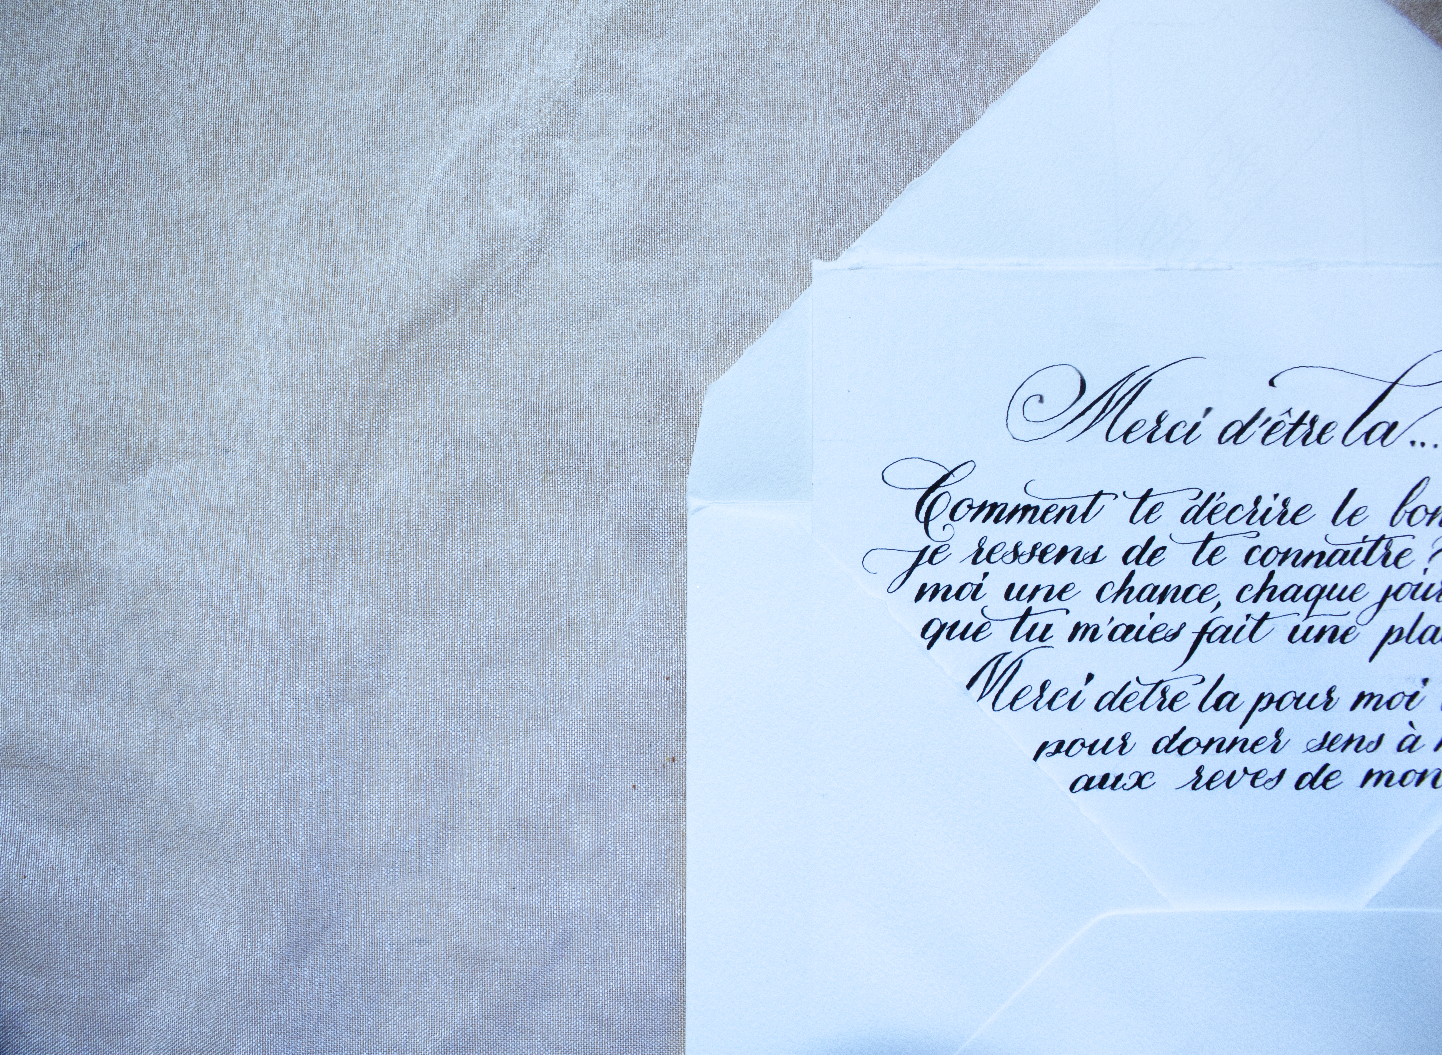 Merci d'être la...
Comment te décrire le bon
je ressens de te connaitre ?
moi une chance, chaque jour
que tu m'aies fait une pla
Merci dêtre la pour moi
pour donner sens à
aux reves de mon